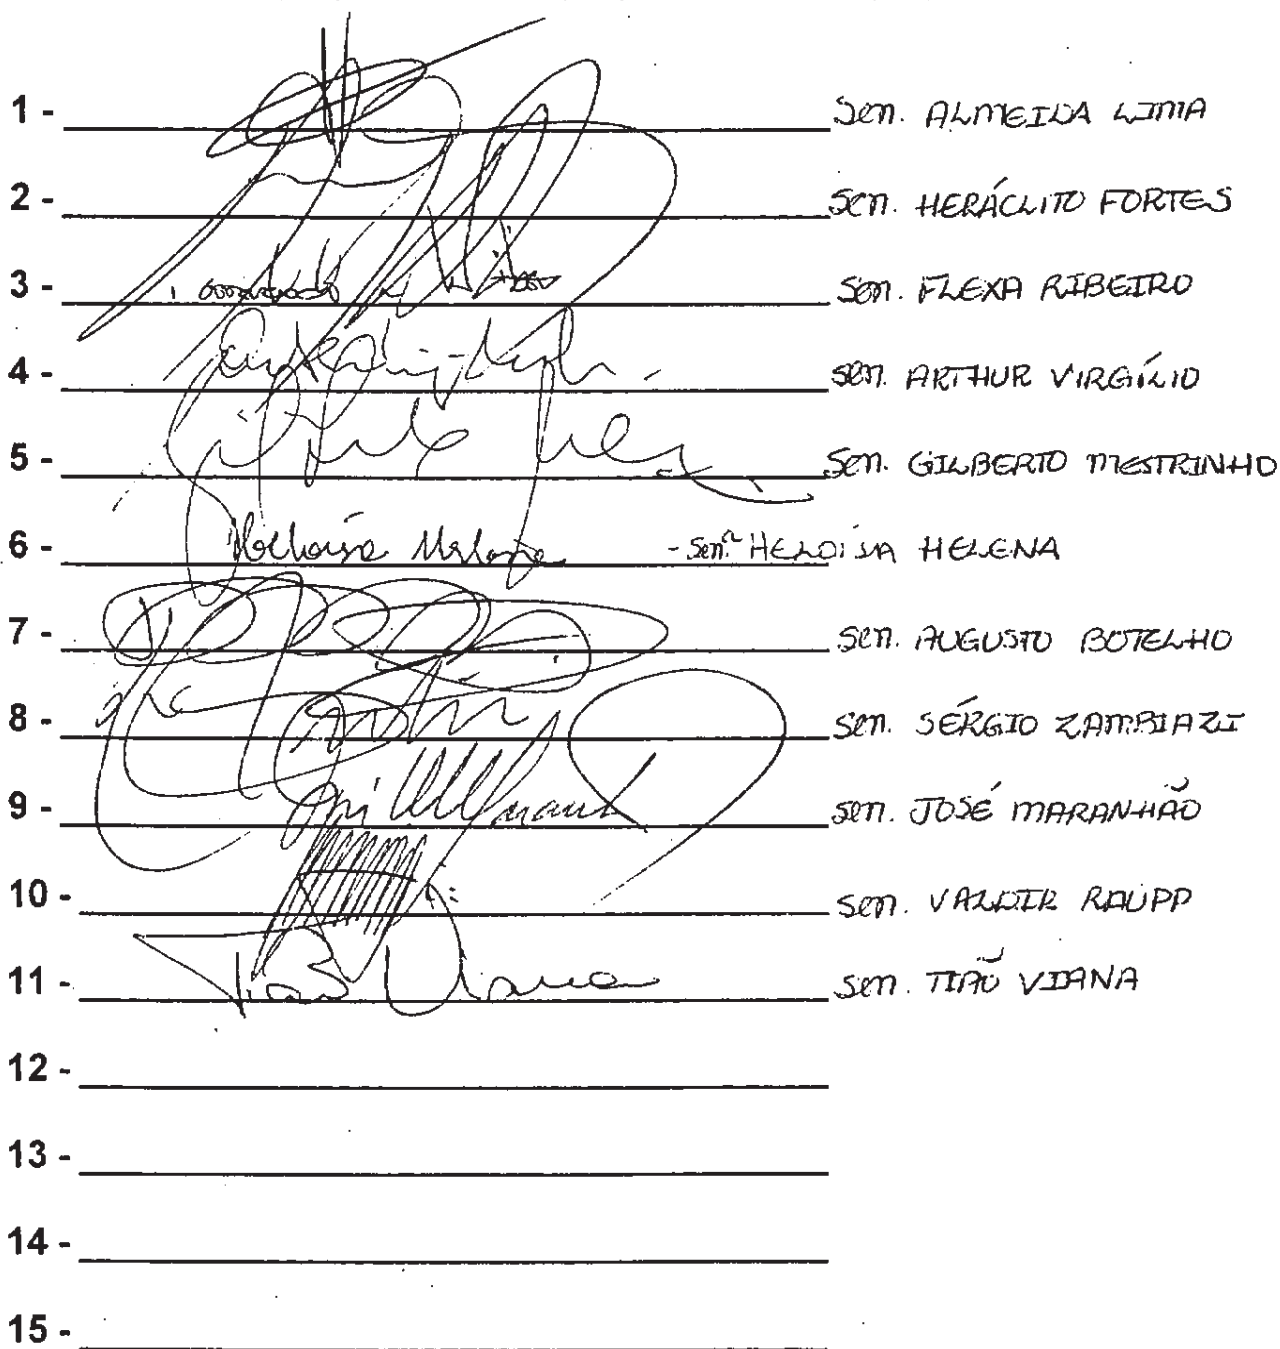 1 - Sen. ALMEIDA LIMA
2 - Sen. HERÁCLITO FORTES
3 - Sen. FLEXA RIBEIRO
4 - Sen. ARTHUR VIRGÍLIO
5 - Sen. GILBERTO MESTRINHO
6 - Heloísa Helena - Senª HELOÍSA HELENA
7 - Sen. AUGUSTO BOTELHO
8 - Sen. SÉRGIO ZAMBIAZI
9 - Sen. JOSÉ MARANHÃO
10 - Sen. VALDIR RAUPP
11 - Tião Viana Sen. TIÃO VIANA
12 -
13 -
14 -
15 -